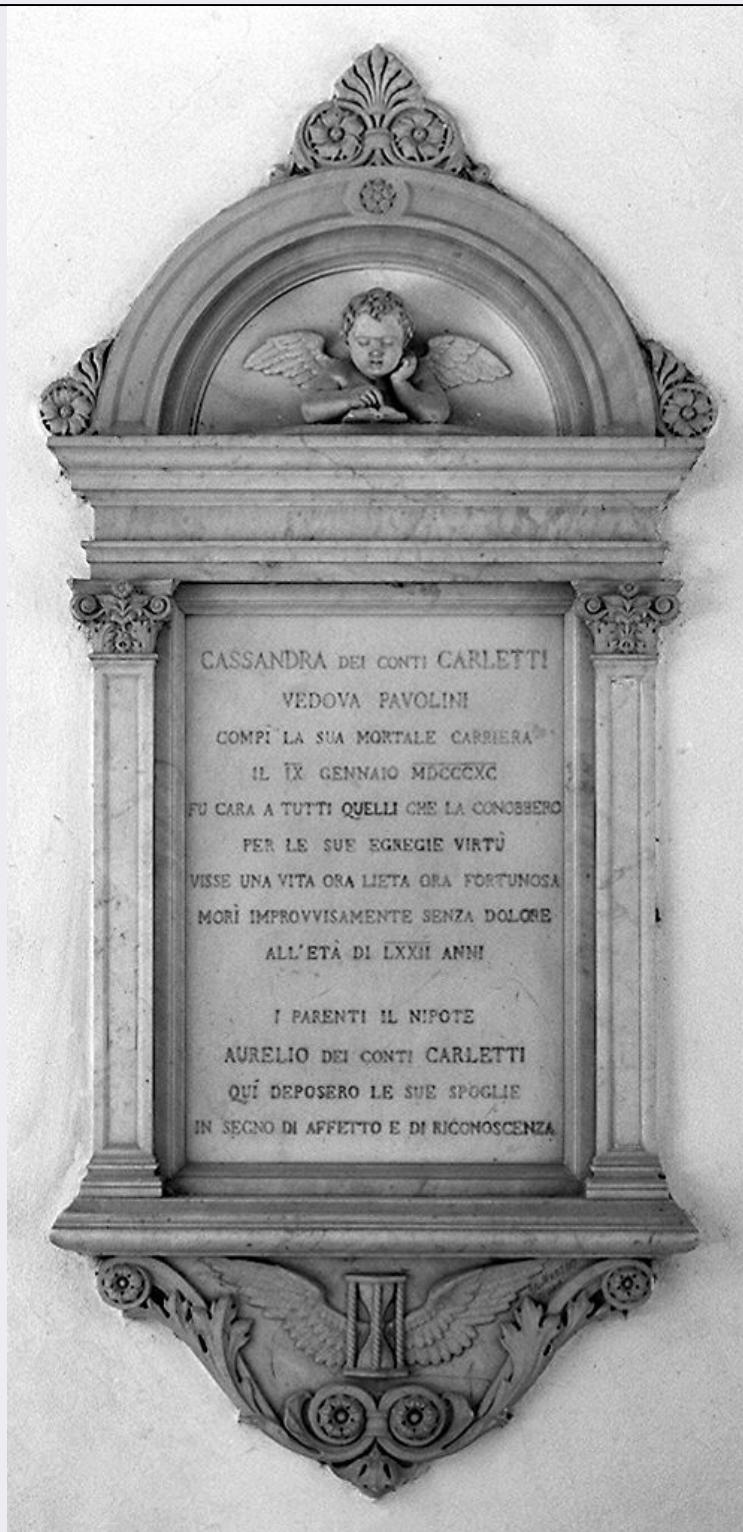 CASSANDRA DEI CONTI CARLETTI
VEDOVA PAVOLINI
COMPÌ LA SUA MORTALE CARRIERA
IL IX GENNAIO MDCCCXC
FU CARA A TUTTI QUELLI CHE LA CONOBBERO
PER LE SUE EGREGIE VIRTÙ
VISSE UNA VITA ORA LIETA ORA FORTUNOSA
MORÌ IMPROVVISAMENTE SENZA DOLORE
ALL'ETÀ DI LXXII ANNI
I PARENTI IL NIPOTE
AURELIO DEI CONTI CARLETTI
QUÍ DEPOSERO LE SUE SPOGLIE
IN SEGNO DI AFFETTO E DI RICONOSCENZA